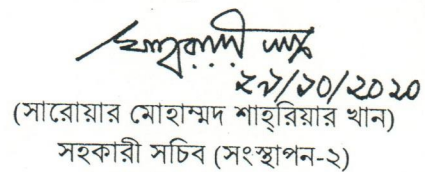 ২৯/১০/২০২০
(সারোয়ার মোহাম্মদ শাহ্‌রিয়ার খান)
সহকারী সচিব (সংস্থাপন-২)